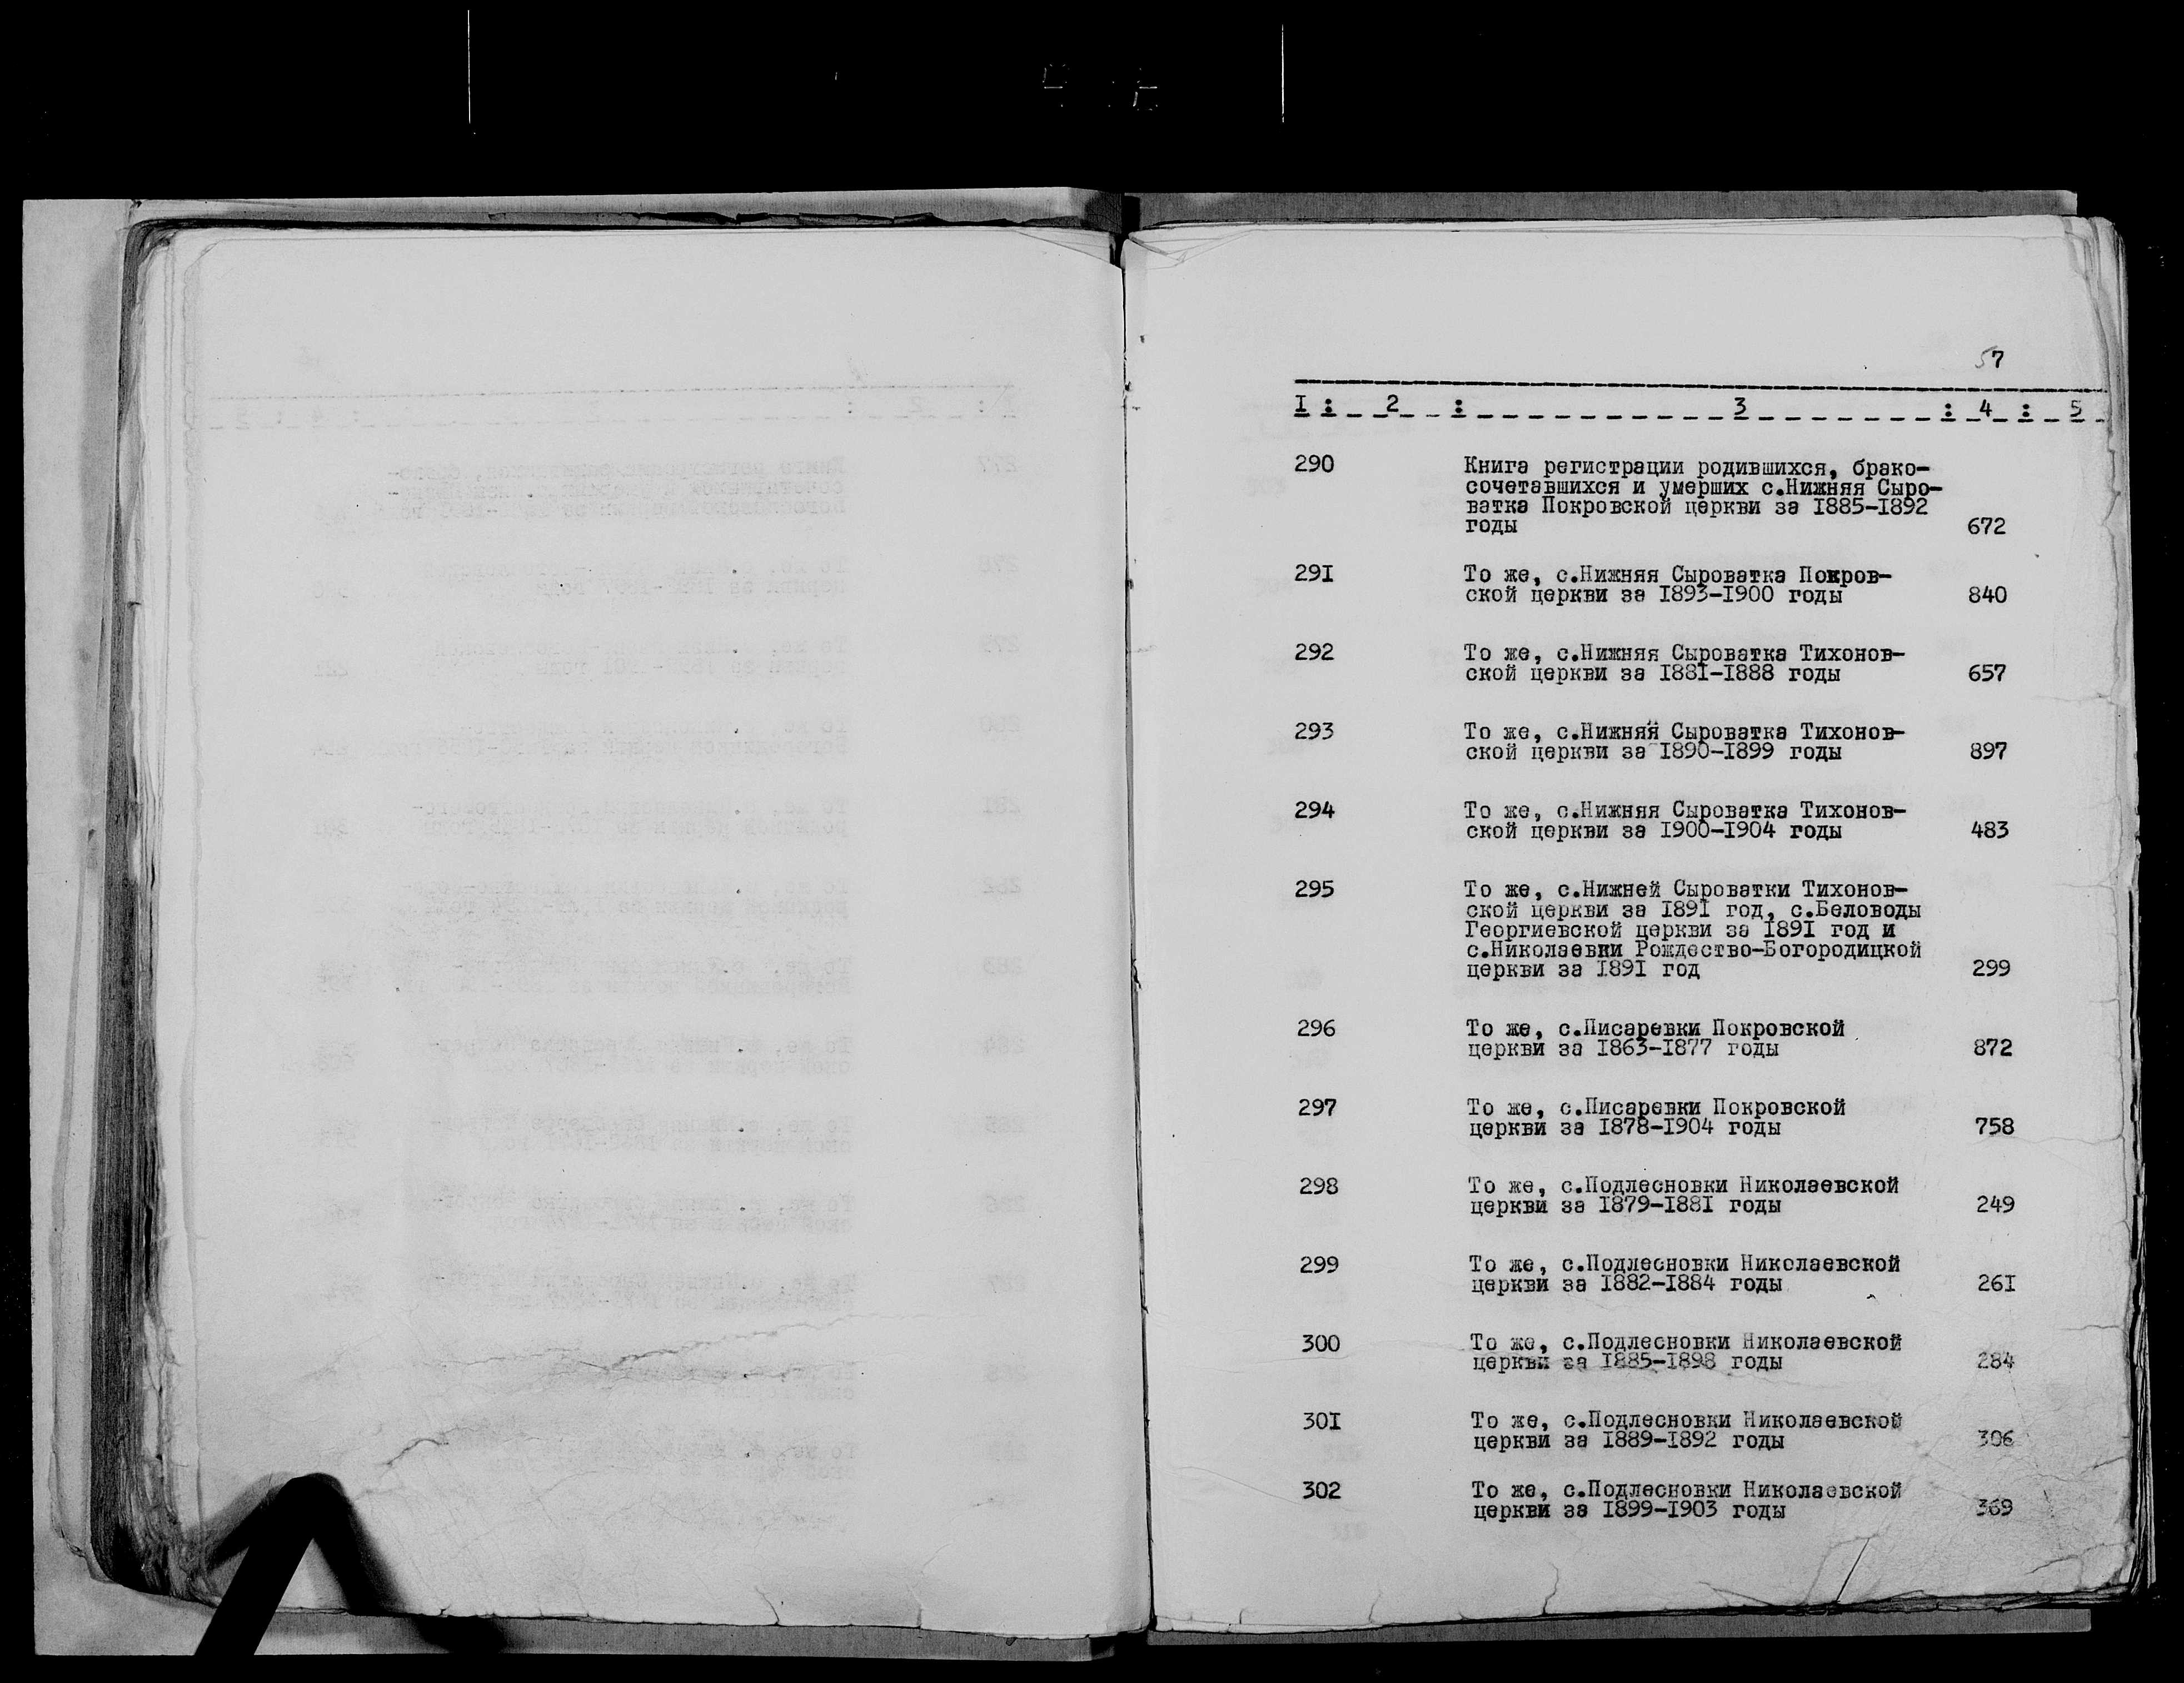 57
I : 2 : 3 : 4 : 5
290 Книга регистрации родившихся, брако-
сочетавшихся и умерших с.Нижняя Сыро-
ватка Покровской церкви за I885-I892
годы 672
29I То же, с.Нижняя Сыроватка Покров-
ской церкви за I893-I900 годы 840
292 То же, с.Нижняя Сыроватка Тихонов-
ской церкви за I88I-I888 годы 657
293 То же, с.Нижняя Сыроватка Тихонов-
ской церкви за I890-I899 годы 897
294 То же, с.Нижняя Сыроватка Тихонов-
ской церкви за I900-I904 годы 483
295 То же, с.Нижней Сыроватки Тихонов-
ской церкви за I89I год, с.Беловоды
Георгиевской церкви за I89I год и
с.Николаевки Рождество-Богородицкой
церкви за I89I год 299
296 То же, с.Писаревки Покровской
церкви за I863-I877 годы 872
297 То же, с.Писаревки Покровской
церкви за I878-I904 годы 758
298 То же, с.Подлесновки Николаевской
церкви за I879-I88I годы 249
299 То же, с.Подлесновки Николаевской
церкви за I882-I884 годы 26I
300 То же, с.Подлесновки Николаевской
церкви за I885-I898 годы 284
30I То же, с.Подлесновки Николаевской
церкви за I889-I892 годы 306
302 То же, с.Подлесновки Николаевской
церкви за I899-I903 годы 369